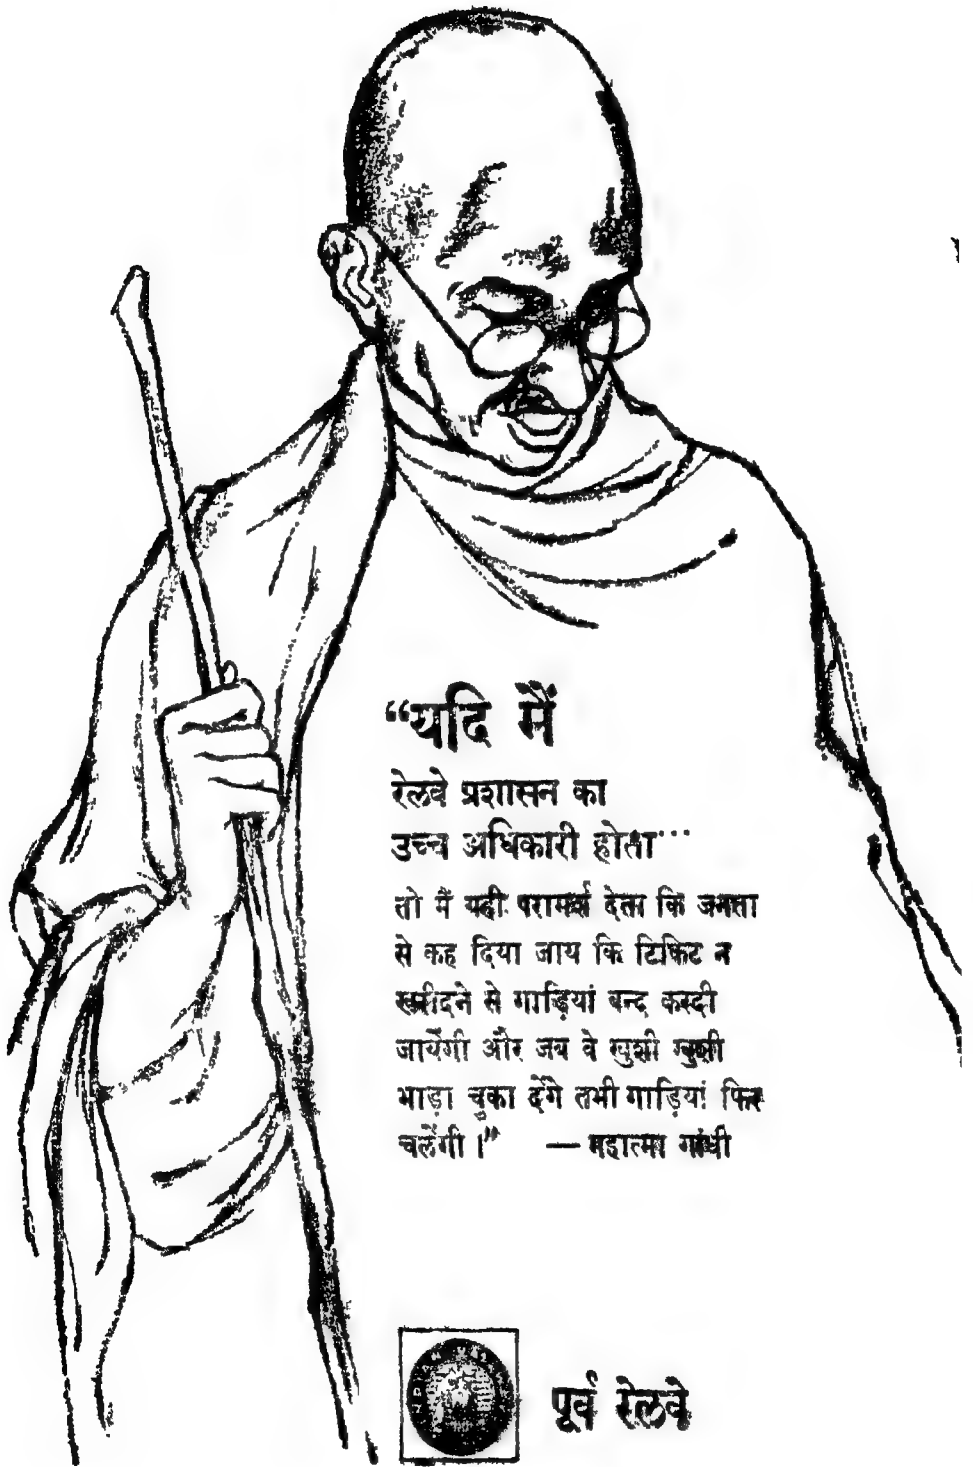 “यदि मैं
रेलवे प्रशासन का
उच्च अधिकारी होता...
तो मैं यही परामर्श देता कि जनता
से कह दिया जाय कि टिकिट न
खरीदने से गाड़ियां बन्द करदी
जायेंगी और जब वे खुशी खुशी
भाड़ा चुका देंगे तभी गाड़ियां फिर
चलेंगी।” — महात्मा गांधी
पूर्व रेलवे